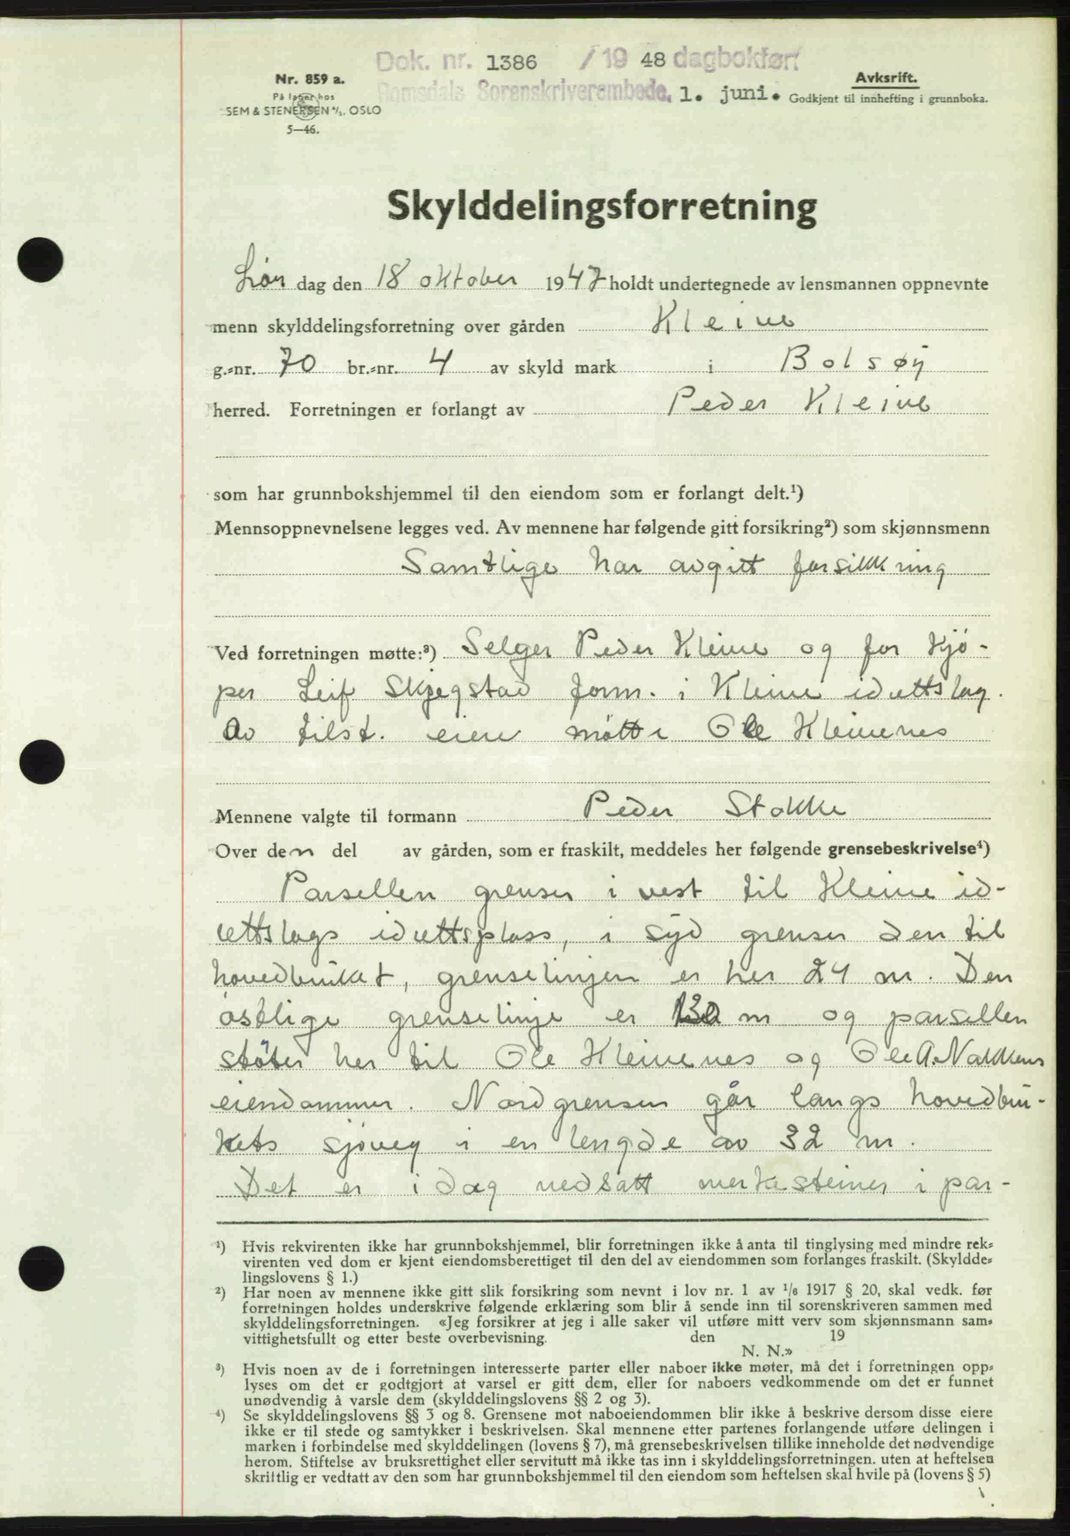 Dok. nr. 1386 / 19 48 dagbokført
Romsdals Sorenskriverembede, 1. juni.
Nr. 859 a.
På lager hos
SEM & STENERSEN A/S. OSLO
5—46.
Avskrift.
Godkjent til innhefting i grunnboka.
Skylddelingsforretning
Lør dag den 18 oktober 1947 holdt undertegnede av lensmannen oppnevnte
menn skylddelingsforretning over gården Kleive
g.-nr. 70 br.-nr. 4 av skyld mark i Bolsøy
herred. Forretningen er forlangt av Peder Kleive
som har grunnbokshjemmel til den eiendom som er forlangt delt.¹)
Mennsoppnevnelsene legges ved. Av mennene har følgende gitt forsikring²) som skjønnsmenn
Samtlige har avgitt forsikkring
Ved forretningen møtte:³) Selger Peder Kleive og for kjø-
per Leif Skjegstad form. i Kleive idrettslag.
Av tilst. eiere møtte Ole Kleivenes
Mennene valgte til formann Peder Stokke
Over den del av gården, som er fraskilt, meddeles her følgende grensebeskrivelse⁴)
Parsellen grenser i vest til Kleive id-
rettslags idrettsplass, i syd grenser den til
hovedbruket, grenselinjen er her 24 m. Den
østlige grenselinje er 130 m og parsellen
støter her til Ole Kleivenes og Ole A. Nakkens
eiendommer. Nordgrensen går langs hovedbru-
kets sjøveg i en lengde av 32 m.
Det er i dag nedsatt merkesteiner i par-
¹) Hvis rekvirenten ikke har grunnbokshjemmel, blir forretningen ikke å anta til tinglysing med mindre rek-
virenten ved dom er kjent eiendomsberettiget til den del av eiendommen som forlanges fraskilt. (Skyldde-
lingslovens § 1.)
²) Har noen av mennene ikke gitt slik forsikring som nevnt i lov nr. 1 av 1/6 1917 § 20, skal vedk. før
forretningen holdes underskrive følgende erklæring som blir å sende inn til sorenskriveren sammen med
skylddelingsforretningen. «Jeg forsikrer at jeg i alle saker vil utføre mitt verv som skjønnsmann sam-
vittighetsfullt og etter beste overbevisning. den 19
N. N.»
³) Hvis noen av de i forretningen interesserte parter eller naboer ikke møter, må det i forretningen opp-
lyses om det er godtgjort at varsel er gitt dem, eller for naboers vedkommende om det er funnet
unødvendig å varsle dem (skylddelingslovens §§ 2 og 3).
⁴) Se skylddelingslovens §§ 3 og 8. Grensene mot naboeiendommen blir ikke å beskrive dersom disse eiere
ikke er til stede og samtykker i beskrivelsen. Skal mennene etter partenes forlangende utføre delingen i
marken i forbindelse med skylddelingen (lovens § 7), må grensebeskrivelsen tillike inneholde det nødvendige
herom. Stiftelse av bruksrettighet eller servitutt må ikke tas inn i skylddelingsforretningen. uten at heftelsen
skriftlig er vedtatt av den som har grunnbokshjemmel til den eiendom som heftelsen skal hvile på (lovens § 5)